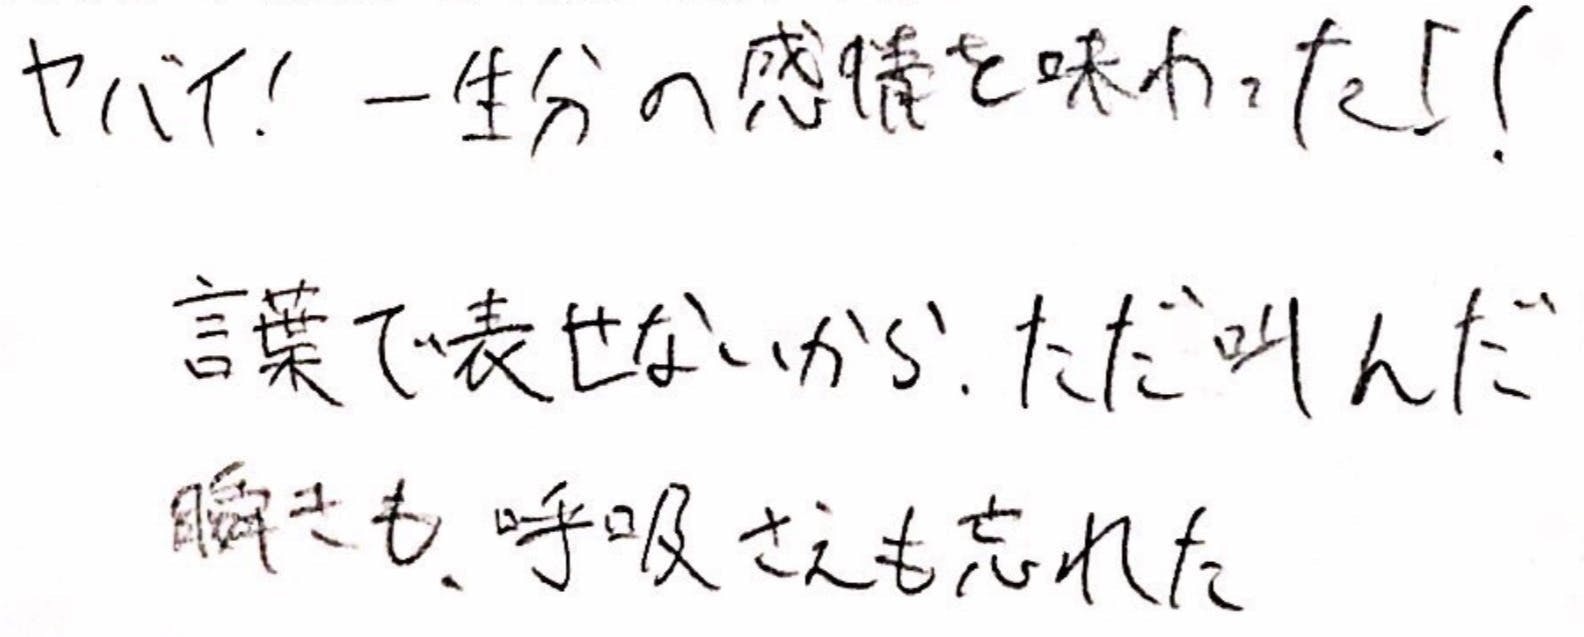 ヤバイ! 一生分の感情を味わった!!
言葉で表せないから、ただ叫んだ
瞬きも、呼吸さえも忘れた